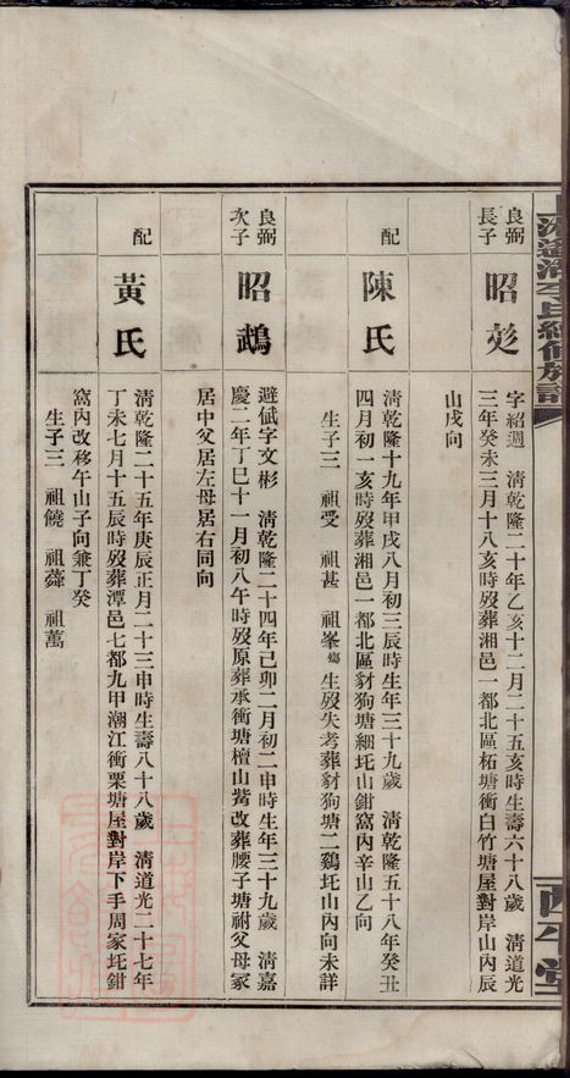 湘邀湖李氏續修族譜
西平堂
良弼
長子
昭彣
字紹週　清乾隆二十年乙亥十二月二十五亥時生壽六十八歲　清道光
三年癸未三月十八亥時歿葬湘邑一都北區柘塘衝白竹塘屋對岸山內辰
山戌向
配
陳氏
清乾隆十九年甲戌八月初三辰時生年三十九歲　清乾隆五十八年癸丑
四月初一亥時歿葬湘邑一都北區豺狗塘細圫山鉗窩內辛山乙向
生子三　祖受　祖甚　祖峯殤生歿失考葬豺狗塘二鷄圫山內向未詳
良弼
次子
昭鵡
避㒇字文彬　清乾隆二十四年己卯二月初二申時生年三十九歲　清嘉
慶二年丁巳十一月初八午時歿原葬承衝塘檀山觜改葬腰子塘祔父母冢
居中父居左母居右同向
配
黃氏
清乾隆二十五年庚辰正月二十三申時生壽八十八歲　清道光二十七年
丁未七月十五辰時歿葬潭邑七都九甲潮江衝栗塘屋對岸下手周家圫鉗
窩內改移午山子向兼丁癸
生子三　祖饒　祖蕣　祖萬